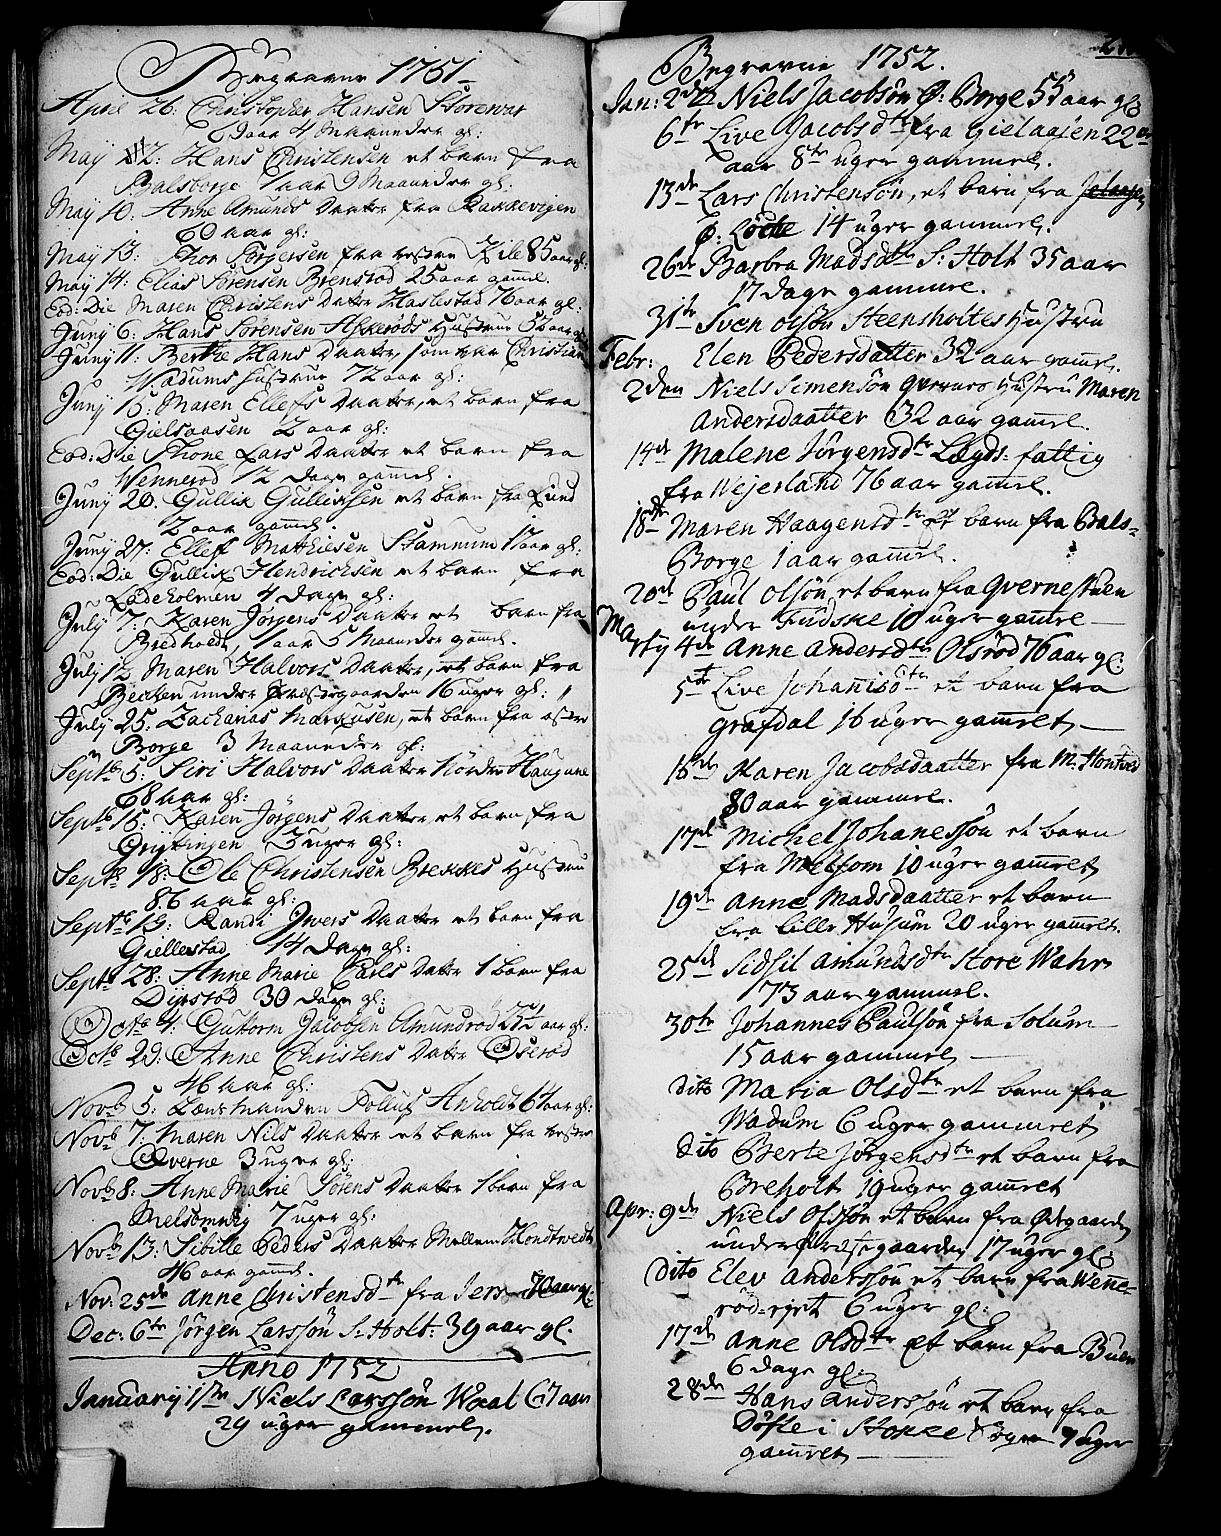 Begravne 1751
April 26: Christopher Hansen Storevar
6 aar 4 Maaneder gl:
May 2: Hans Christensen et barn fra
Balsborge 1 aar 9 Maaneder gl:
May 10: Anne Amunds Daater fra Rakkevigen
60 aar gl:
May 13: Thor Torgersen fra vestre Kile 85 aar gl:
May 14: Elias Sørensen Brenstad 25 aar gamel.
Eod: Die Maren Christens Dater Haslestad 76 aar gl:
Juny 6: Hans Sørensen Askerøds Hustrue aar gl
Juny 11: Berthe Hans Daater, som var Christian
Wadums hustrue 72 aar gl:
Juny 16: Maren Ellefs Daater, et barn fra
Gielsaasen 2 aar gl:
Eod: Die Thone Lars Daater et barn fra
Wennerød 12 Dage gamel
Juny 20. Gullik Gullichsen et barn fra Lund
2 aar gamel.
Juny 27: Ellef Mathiesen Stammum aar gl:
Eod: Die Gullik Hendrichsen et barn fra
Ladeholmen 4 Dage gl:
July 7: Karen Jørgens Daater et barn fra
Bredholt, 1 aar 5 Maaneder gamel.
July 12 Maren Halvors Daater, et barn fra
Becken under Præstegaarden 16 uger gl:
July 25: Zacharias Marcusen, et barn fra østre
Borge 3 Maaneder gl:
Septb 5: Siri Halvors Daater Nordre Haugane
68 aar gl:
Septb 15: Karen Jørgens Daater et barn fra
3 uger gl:
Septb 18: Ole Christensen Brekkes Hustrue
86 aar gl:
Septb 19: Randi Iwers Daater et barn fra
Giellestad 14 Dage gl:
Septb 28: Anne Marie Carls Dater 1 barn fra
30 Dage gl:
Octb 4: Guttorm Jacobsen Amundrød aar gl:
Octb 29: Anne Christens Dater Oserød
46 aar gl:
Novb 5: Lænsmanden Tollus Anholdt 61 aar gl:
Novb 7: Maren Nils Daater et barn fra vestre
Qverne 3 uger gl:
Novb 8: Anne Marie Sørens Daater 1 barn fra
Melsomvig 7 uger gl:
Novb 13: Sibille Peders Daater Mellem Hondtvedt
46 aar gamel.
Nov: 25de Anne Christensdtr fra Jers 70 aar gl:
Dec: 6te Jørgen Larssøn S: Holt: 39 aar gl.
Anno 1752
January 1ste Niels Larssøn Waal 67 aar
29 uger gammel.
Begravne 1752.
Jan: 2den Niels Jacobsøn Ø: Borge 55 aar gl
6te Live Jacobsdtr fra Gielaasen 22
aar 8te uger gammel.
13de Lars Christensøn, et barn fra
Ø: Løcke 14 uger gammel.
26de Barbra Madsdtr S: Holt 35 aar
17 dage gammel.
31te Sven olsøn Steensholtes Hustru
Febr: Elen Pedersdatter 32 aar gamel.
2den Niels Simensøn Qvernes Hustru Maren
Andersdaatter 32 aar gamel.
14de Malene Jørgensdtr Lægds: fattig
fra Wejerland 76 aar gamel.
18de Maren Haagensdtr et barn fra Bals-
Borge 1 aar gamel.
20de Paul Olsøn et barn fra Qvernestuen
under Fudske 10 uger gamle
Marty 4de Anne Andersdtr Olsrød 76 aar gl:
5te Live Johanisdtr et barn fra
Grafdal 16 uger gamelt
16de Karen Jacobsdaatter fra M: Hontved
80 aar gammel.
17de Michel Johanessøn et barn
fra Melsom 10 uger gammelt
19de Anne Madsdaatter et barn
fra Lille Husum 20 uger gammelt.
25de Sidsil Amundsdtr Store Wahr
73 aar gammel.
30te Johannes Paulsøn fra Solum
15 aar gammel
dito Maria Olsdtr et barn fra
Wadum 6 uger gammelt
dito Berte Jørgensdtr et barn fra
Breholt 19 uger gammelt
Apr: 9de Niels Olssøn et barn fra Ødegaarden
under Præstegaarden 17 uger gl:
dito Elev Anderssøn et barn fra Wene-
rød-ejet 6 uger gl:
17de Anne Olsdtr et barn fra Buen
6 dage gl:
28de Hans Anderssøn et barn fra
Døfle i Stokke Sogn 7 uger
gammelt